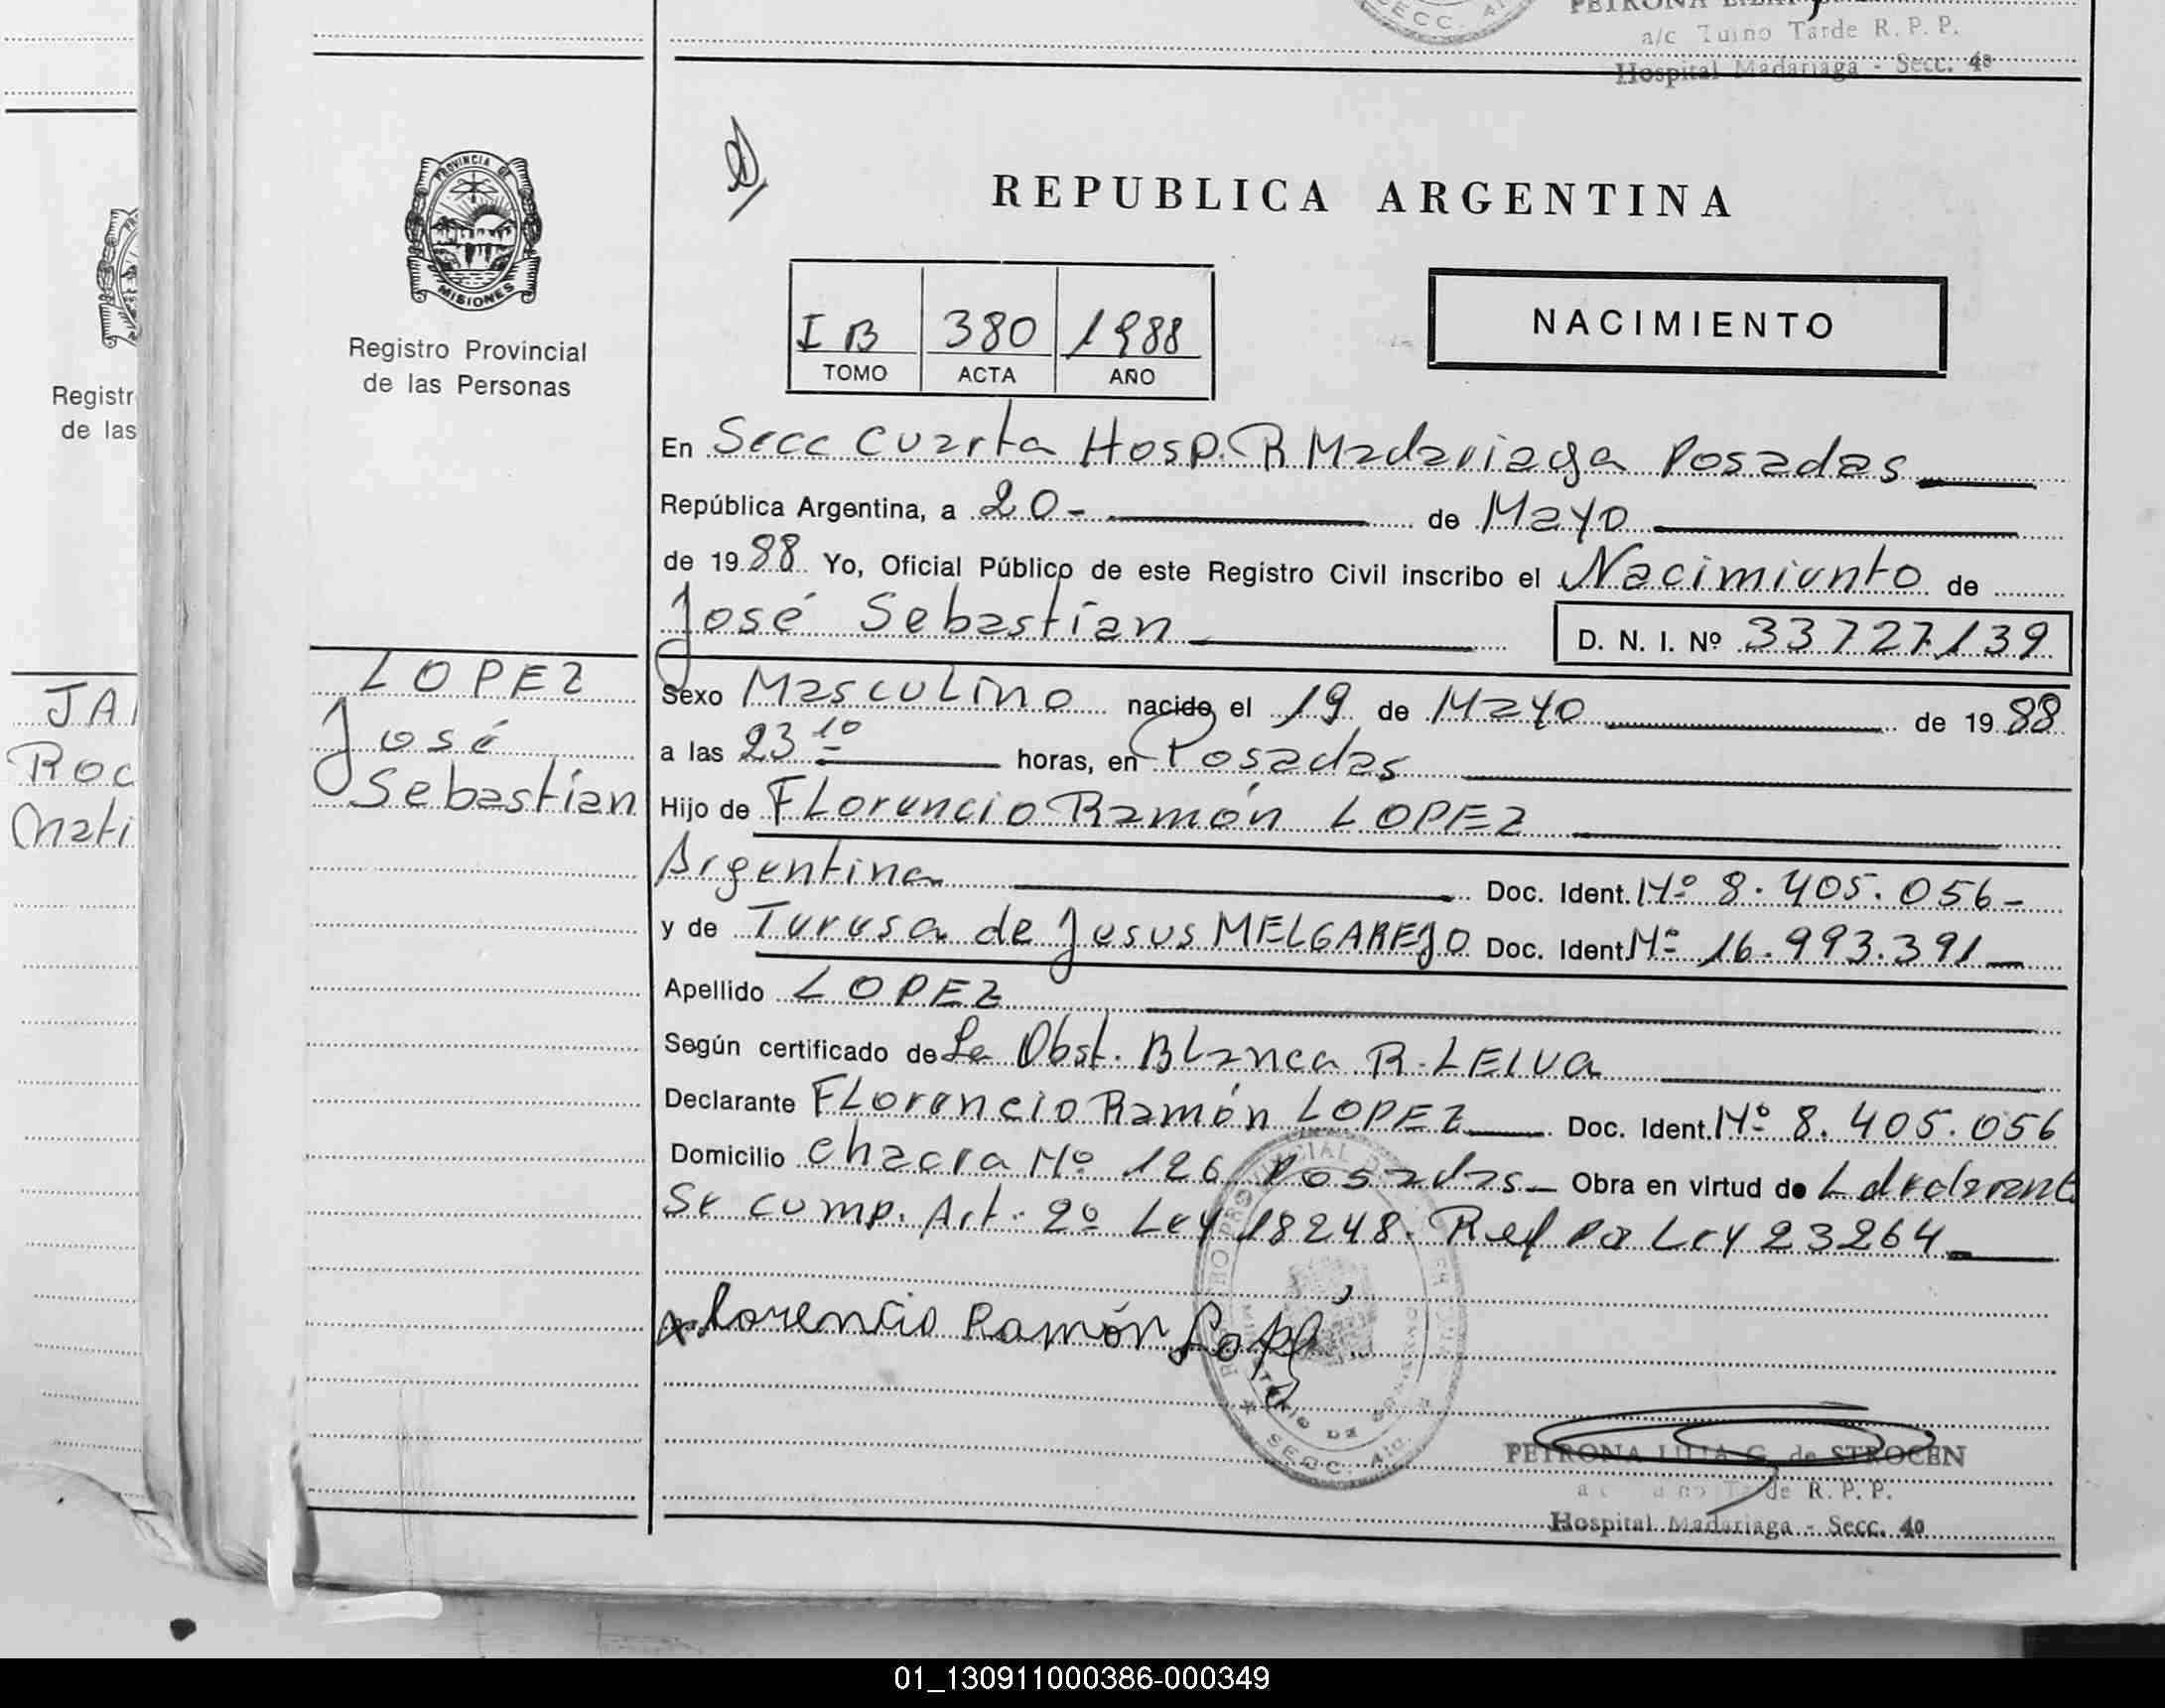 PETRONA
a/c Turno Tarde R. P. P.
Hospital Madariaga - Secc. 4º
PROVINCIA DE
MISIONES
Registro Provincial
de las Personas
REPUBLICA ARGENTINA
I B 380 1988
TOMO ACTA AÑO
NACIMIENTO
En Secc Cuarta Hosp. R Madariaga Posadas
República Argentina, a 20- de Mayo
de 1988 Yo, Oficial Público de este Registro Civil inscribo el Nacimiento de
José Sebastían
D. N. I. Nº 33727139
LOPEZ
José
Sebastían
Sexo Masculino nacido el 19 de Mayo de 1988
a las 23 10 horas, en Posadas
Hijo de Florencio Ramón LOPEZ
Argentina Doc. Ident. Nº 8.405.056-
y de Teresa de Jesus MELGAREJO Doc. Ident. Nº 16.993.391
Apellido LOPEZ
Según certificado de La Obst. Blanca R. LEIVA
Declarante Florencio Ramón LOPEZ Doc. Ident. Nº 8.405.056
Domicilio Chacra Nº 126 Posadas Obra en virtud de
Se comp. Art. 2º Ley 18248. Ref Po Ley 23264
Florencio Ramón Lopez
SECC.
PETRONA LILIA G. de STROCEN
R. P. P.
Hospital Madariaga - Secc. 4º
Registr
de las
JA
Roc
Mati
01_130911000386-000349